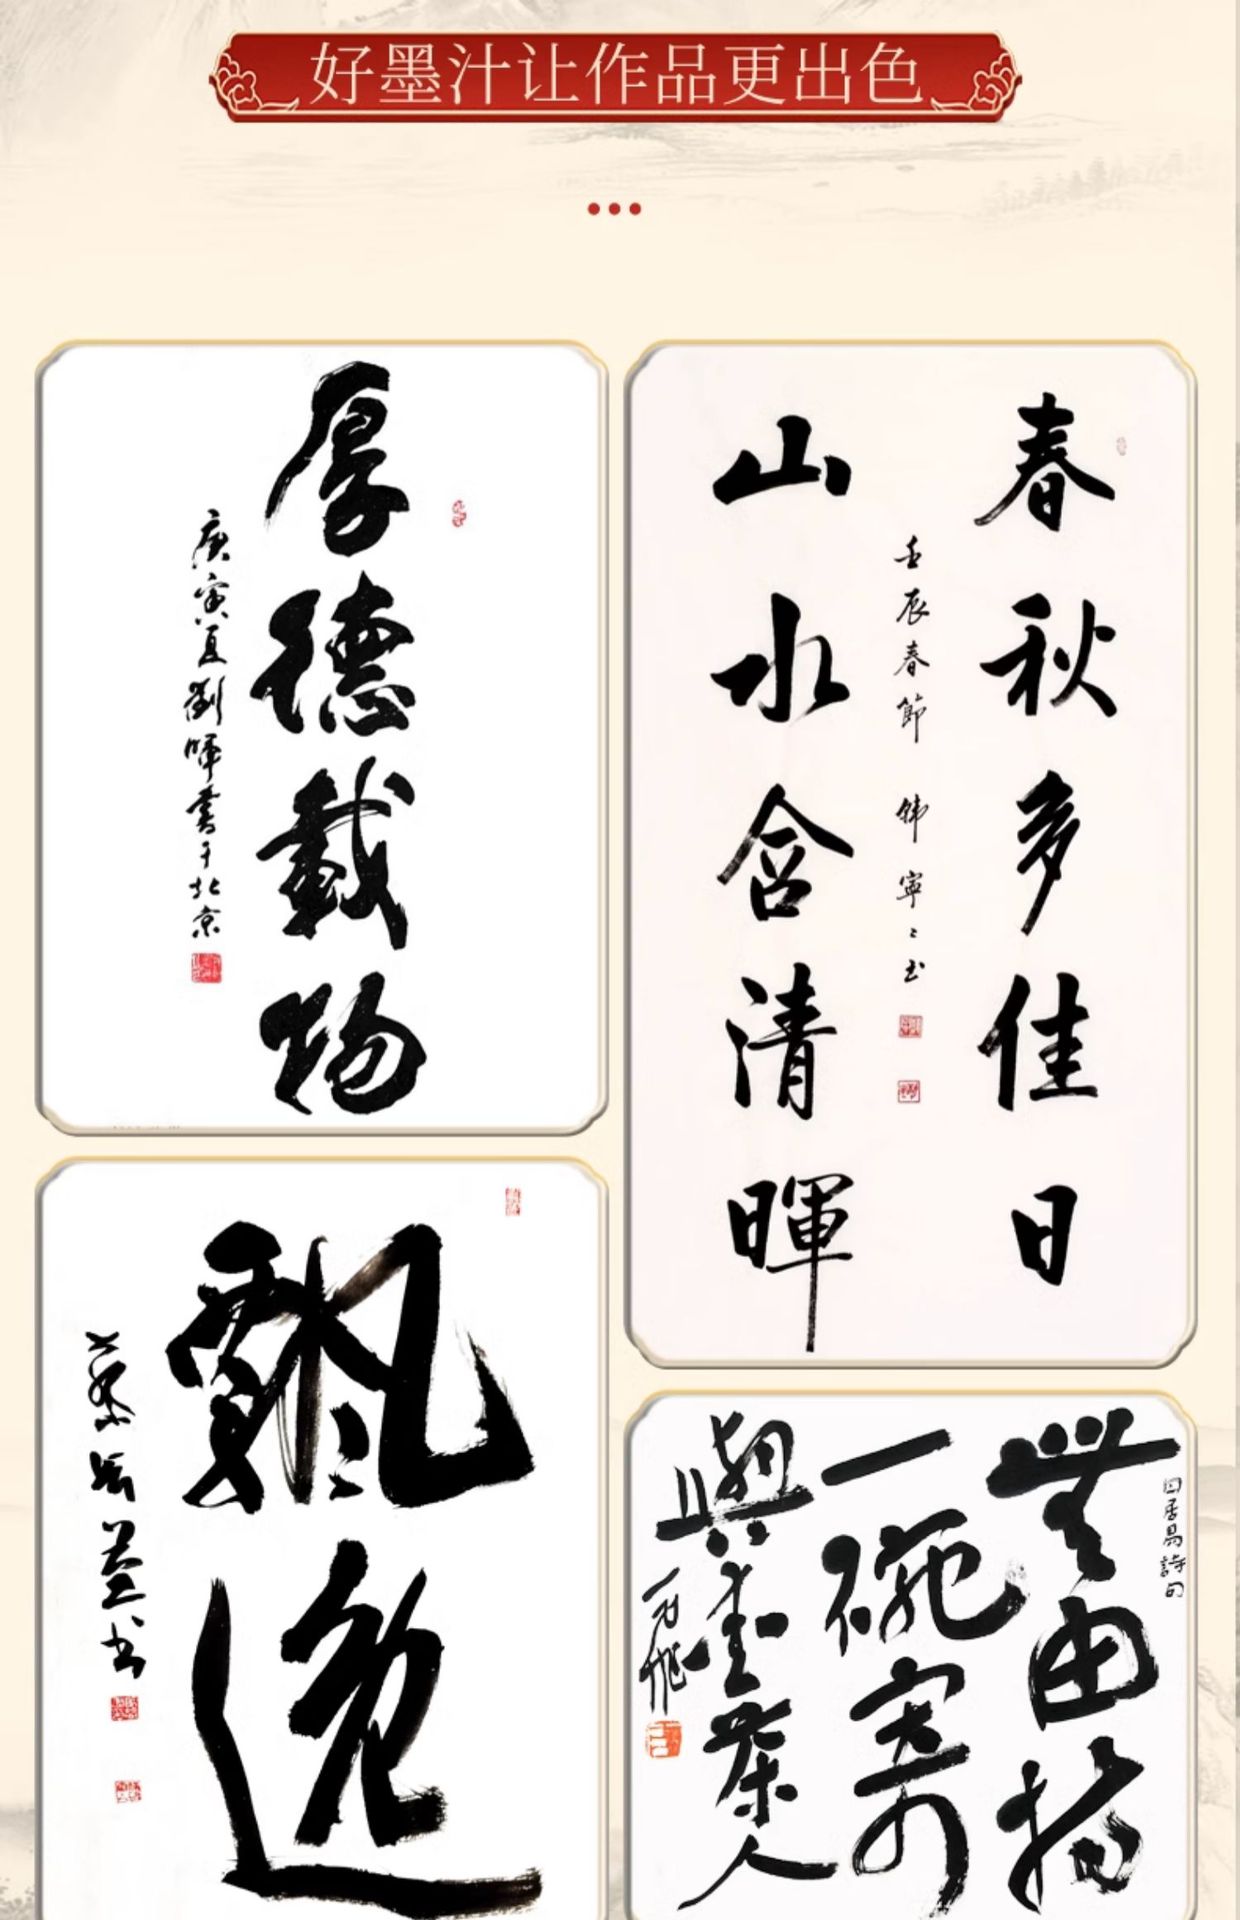 好墨汁让作品更出色
厚德載物
庚寅夏劉暉書于北京
春秋多佳日
山水含清暉
壬辰春節 韩寧寧书
飄逸
無由持
一碗寄
與愛茶人
白居易詩句